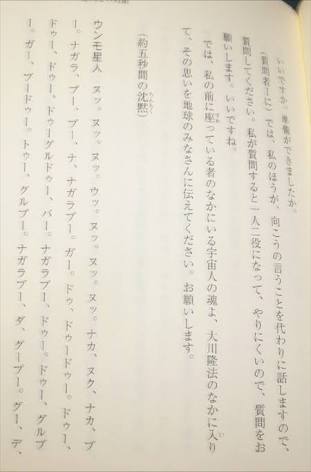 いいですか。準備ができましたか。
（質問者1に）では、私のほうが、向こうの言うことを代わりに話しますので、
質問してください。私が質問すると一人二役になって、やりにくいので、質問をお
願いします。いいですね。
では、私の前に座っている者のなかにいる宇宙人の魂よ、大川隆法のなかに入り
て、その思いを地球のみなさんに伝えてください。お願いします。
（約五秒間の沈黙）
ウンモ星人 ヌッ。ヌッ。ヌッ。ウッ。ヌッ。ヌッ。ヌッ。ナカ、ヌク、ナカ、ブ
ー。ナガラ、ブー、ブー、ナ、ナガラブー。ガー。ドゥ、ドゥードゥー。ドゥー、
ドゥー、ドゥー。ドゥーグルドゥー、バー。ナガラブー、ドゥー。ドゥー、グルブ
ー。ガー、ブードゥー。トゥー、グルブー。ナガラブー、ダ、グーブー。グー、デ、